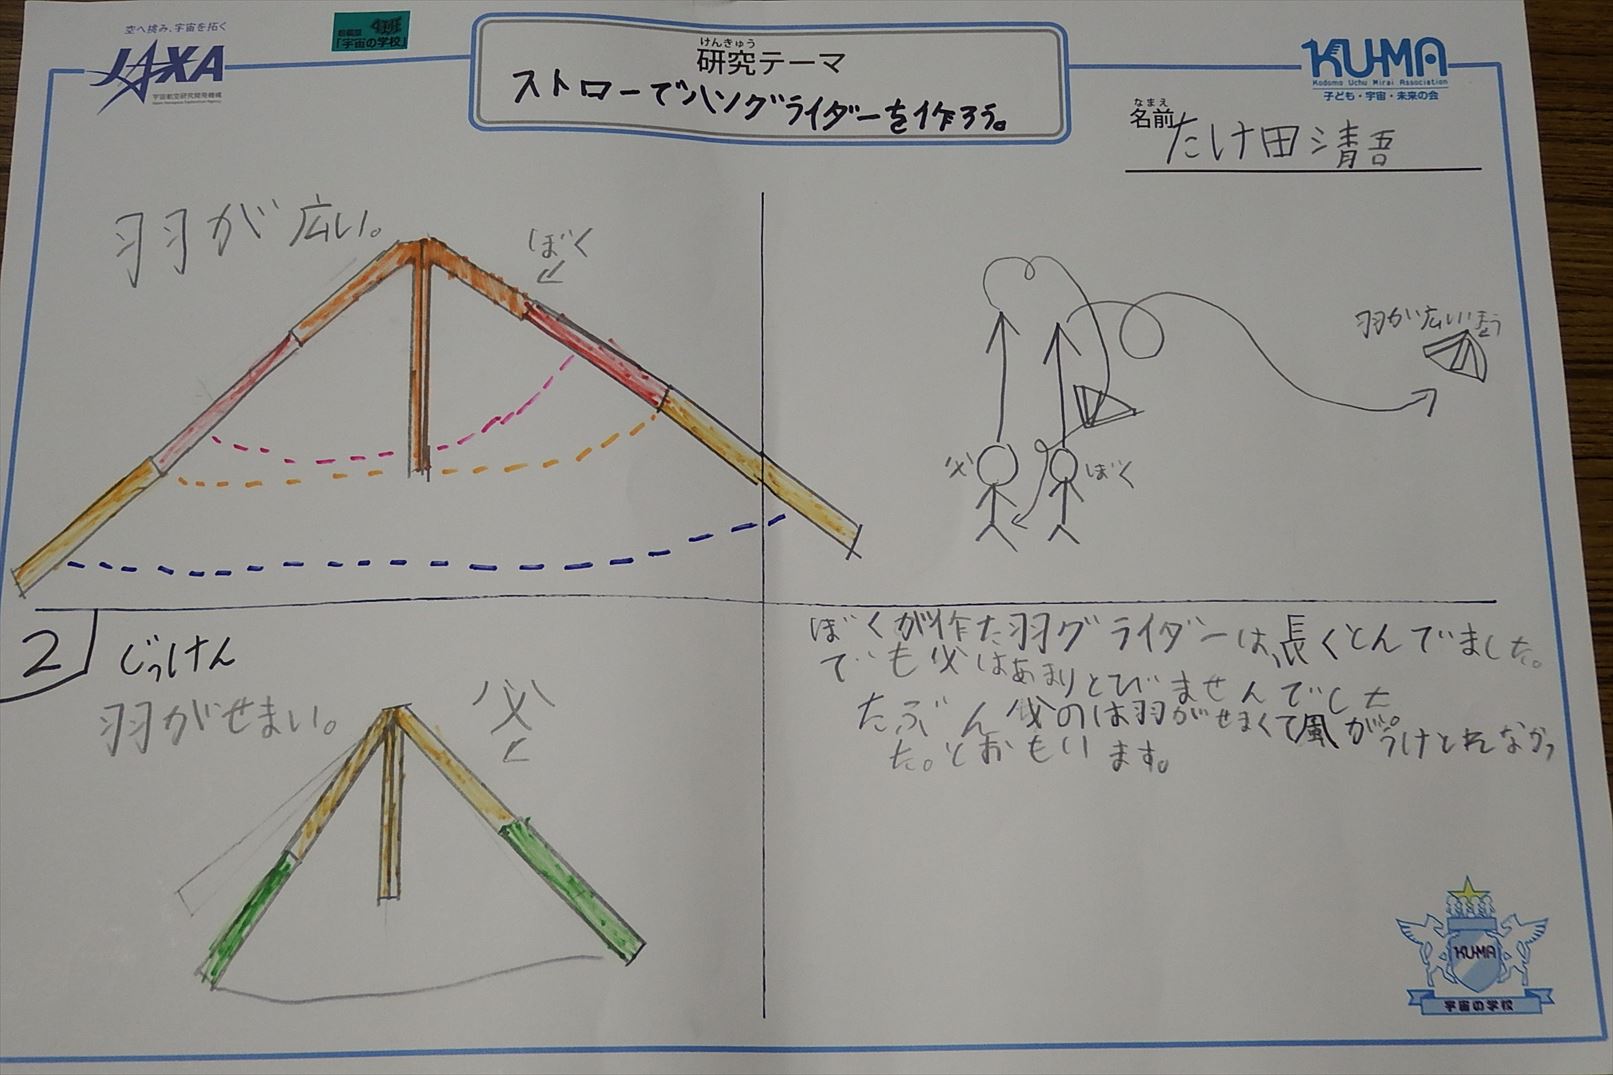 空へ挑み、宇宙を拓く
JAXA
宇宙航空研究開発機構
「宇宙の学校」
けんきゅう
研究テーマ
ストローでハングライダーを作ろう。
KU-MA
Kodomo Uchu Mirai Association
子ども・宇宙・未来の会
なまえ
名前
たけ田清吾
羽が広い。
ぼく
羽が広いほう
父
ぼく
2
じっけん
羽がせまい。
父
ぼくが作た羽グライダーは、長くとんでました。
でも父はあまりとびませんでした。
たぶん父のは羽がせまくて風がうけとれなかっ
た。とおもいます。
KU-MA
宇宙の学校